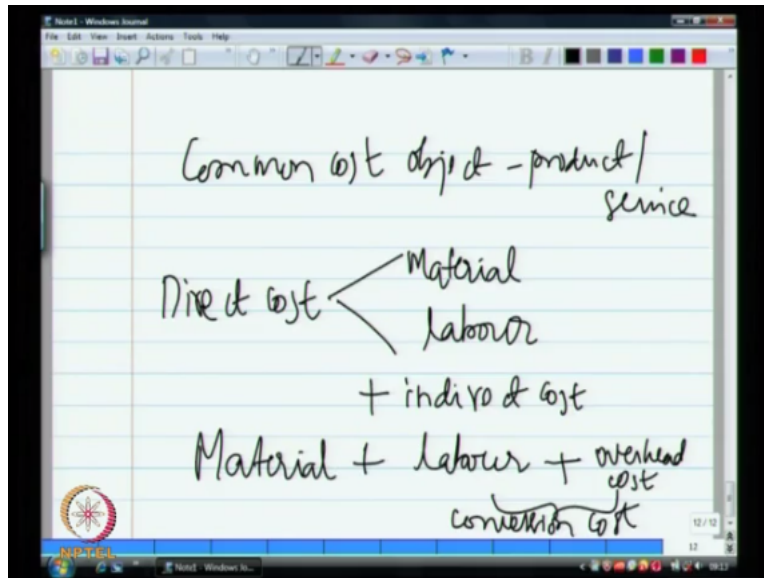 Note1 - Windows Journal
File Edit View Insert Actions Tools Help
B I
Common cost object - product/
service
Direct cost
Material
labour
+ indirect cost
Material + labour + overhead
cost
conversion cost
12/12
12
NPTEL
Note1 - Windows Jo...
09:13